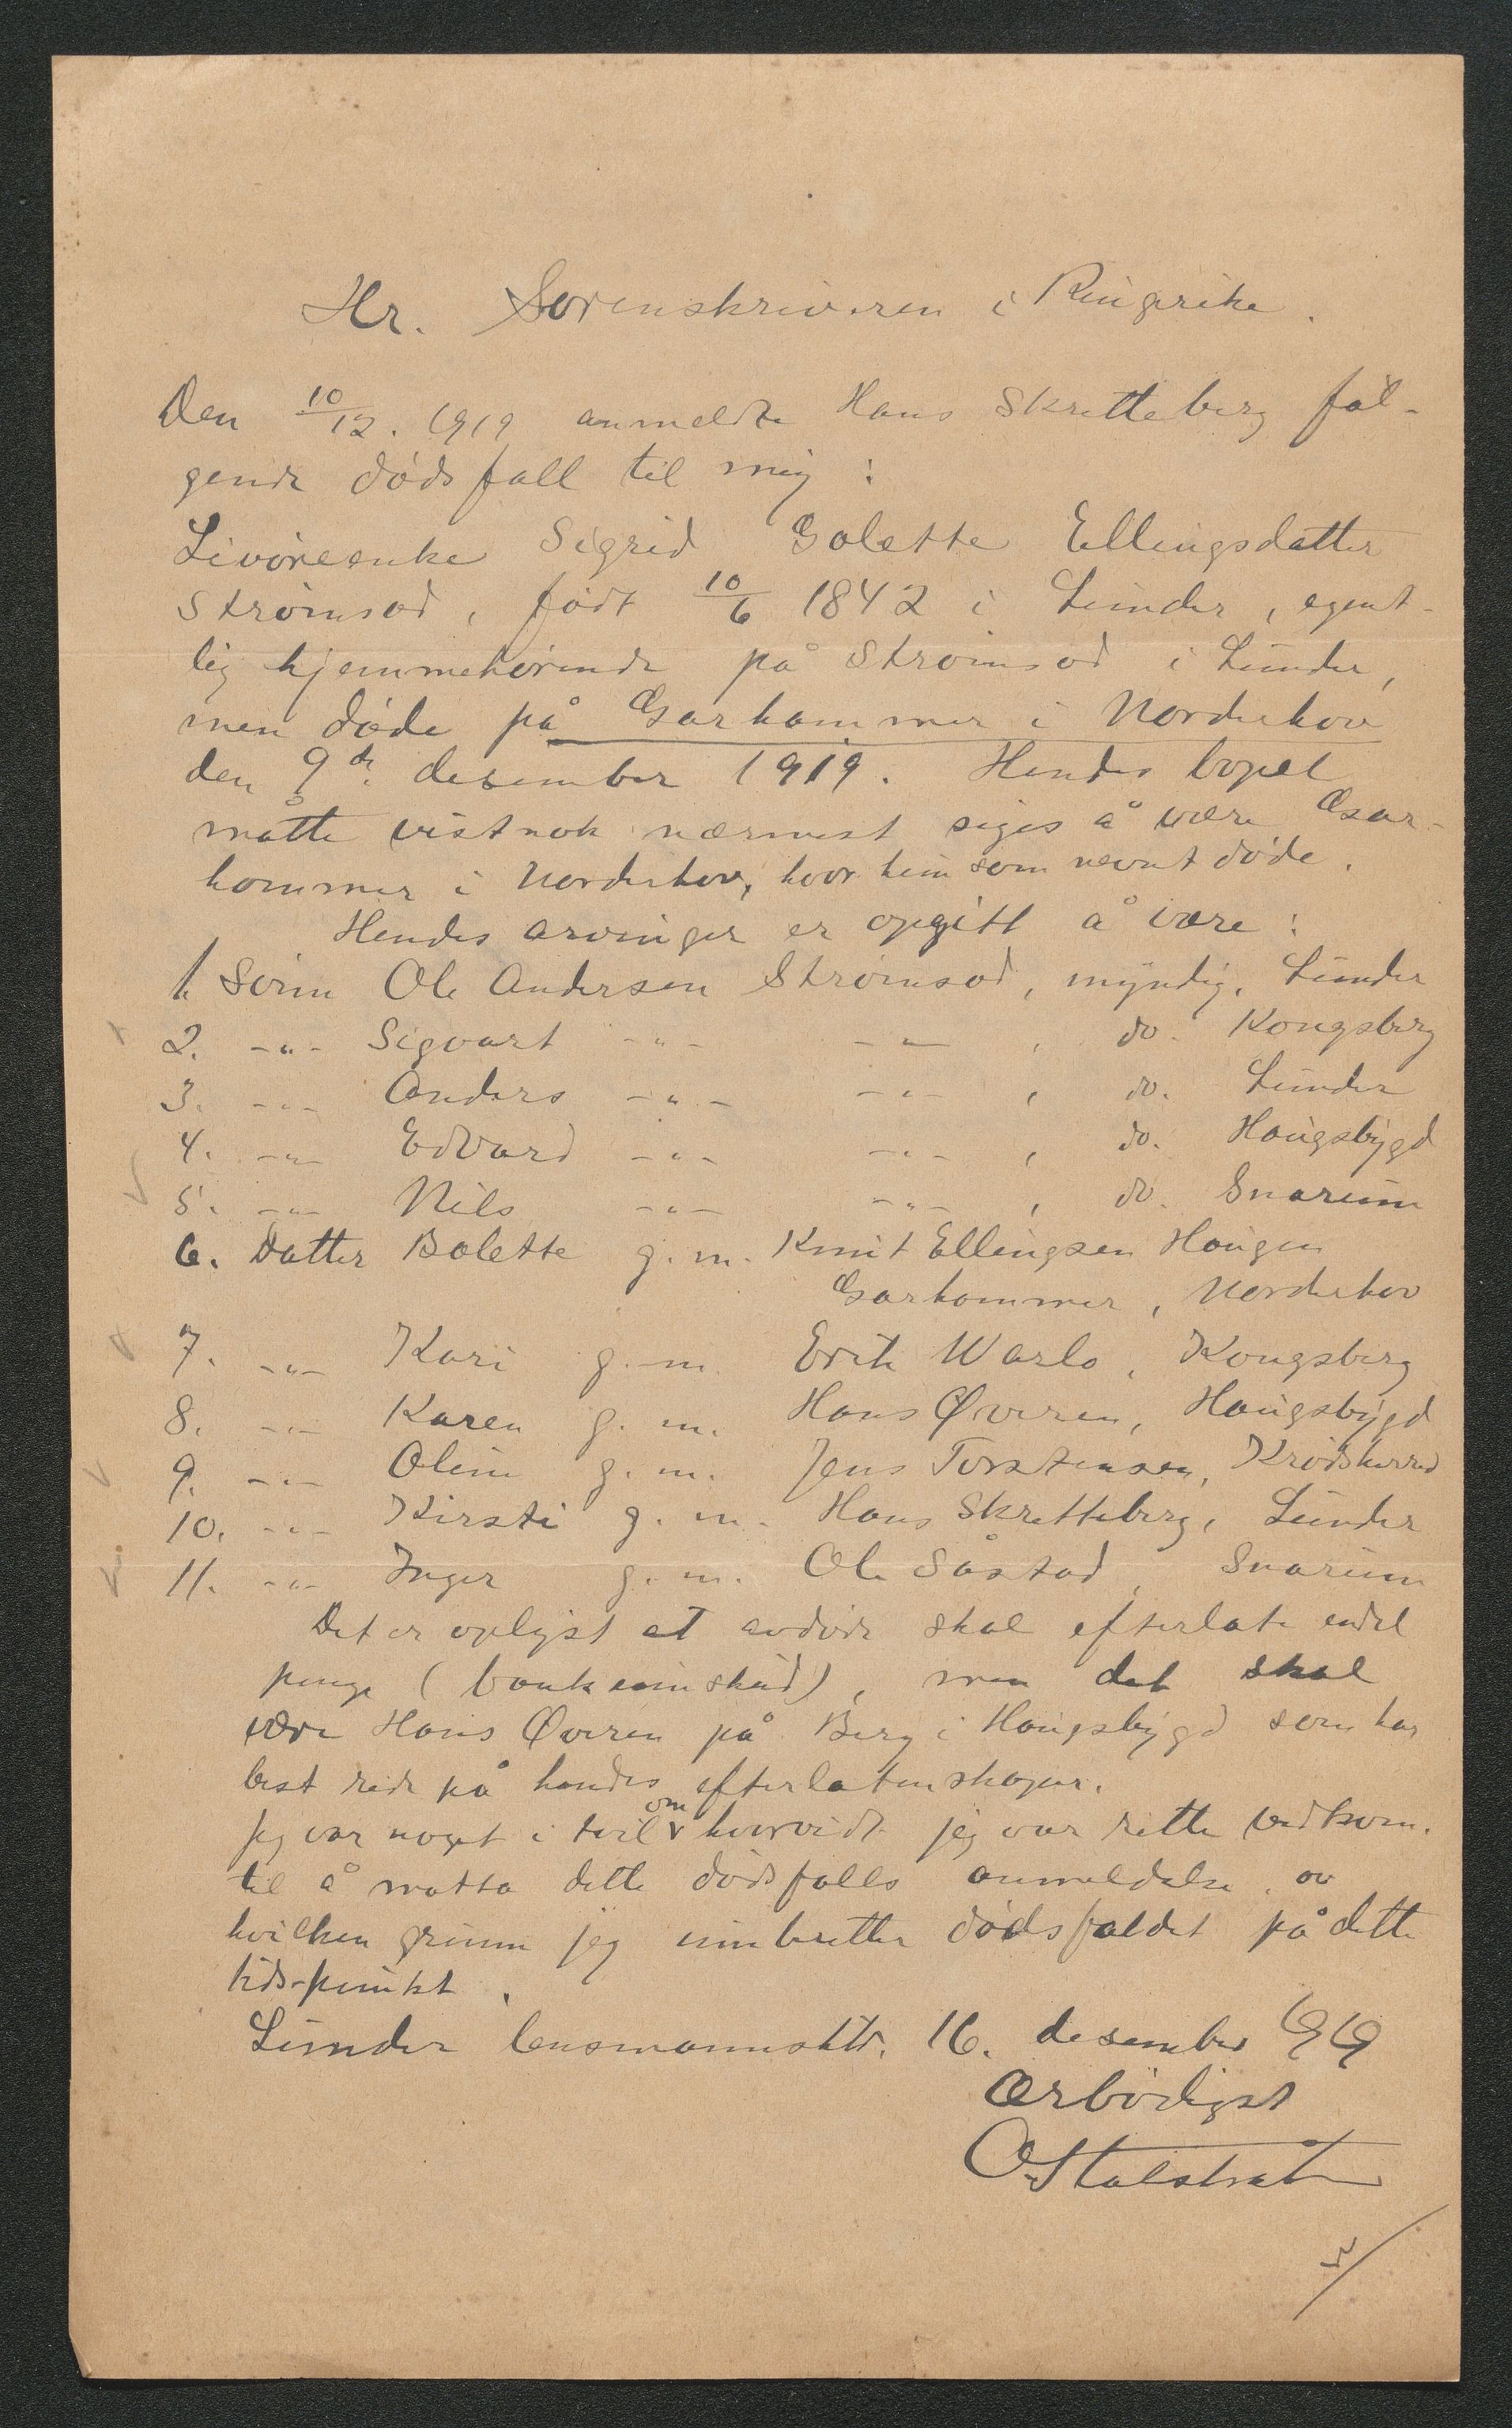 Hr. Sorenskriveren i Ringerike.
Den 10/12. 1919 anmeldte Hans Skretteberg føl-
gende dødsfall til mig:
Livøreenke Sigrid Golette Ellingsdatter
Strømsod, født 10/6 1842 i Lunder, egent-
lig hjemmehørende på Strømsod i Lunder,
men døde på Garhammer i Norderhov
den 9de desember 1919. Hendes bopel
måtte vistnok nærmest siges å være Gar-
hammer i Norderhov, hvor hun som nevnt døde.
Hendes arvinger er opgitt å være:
1. Sønn Ole Andersen Strømsod, myndig, Lunder
2. -"- Sigvart -"- -"-, do. Kongsberg
3. -"- Anders -"- -"-, do. Lunder
4. -"- Edvard -"- -"-, do. Haugsbygd
5. -"- Nils -"- -"-, do. Snarum
6. Datter Bolette g. m. Knut Ellingsen Haugen
Garhammer, Norderhov
7. -"- Kari g. m. Erik Warlo, Kongsberg
8. -"- Karen g. m. Hans Øveren, Haugsbygd
9. -"- Oline g. m. Jens Torstensen, Krødsherred
10. -"- Kirsti g. m. Hans Skretteberg, Lunder
11. -"- Inger g. m. Ole Såstad, Snarum
Det er oplyst at avdøde skal efterlate endel
penge (bankinnskud), men det skal
være Hans Øveren på Berg i Haugsbygd som har
best rede på hendes efterlatenskaper.
Jeg var noget i tvil om hvorvidt jeg var rette vedkom.
til å motta dette dødsfalls anmeldelse, av
hvilken grunn jeg innberetter dødsfaldet på dette
tids-punkt.
Lunder lensmannsktr. 16. desember 1919
Ærbødigst
O. Stalstrat